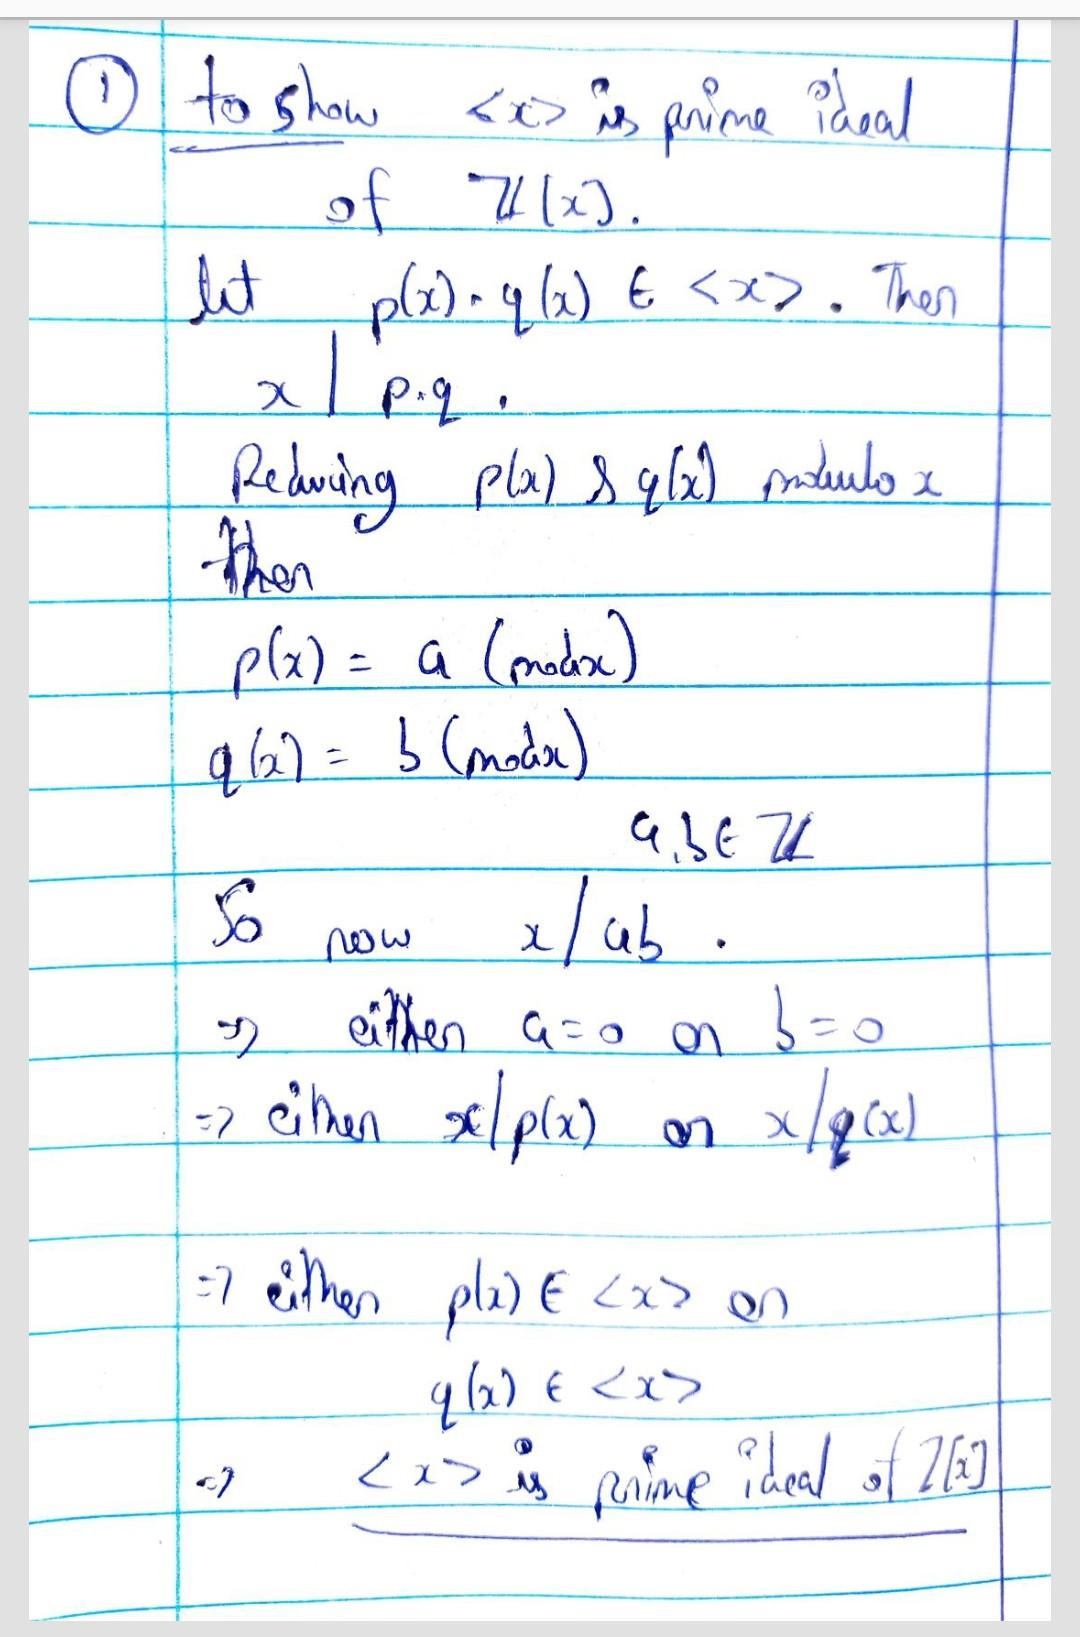 ① to show <x> is prime ideal
of ℤ[x].
let p(x)·q(x) ∈ <x>. Then
x | p.q.
Reducing p(x) & q(x) modulo x
then
p(x) = a (mod x)
q(x) = b (mod x)
a, b ∈ ℤ
So now x/ab.
=> either a=0 or b=0
=> either x/p(x) or x/q(x)
=> either p(x) ∈ <x> or
q(x) ∈ <x>
=> <x> is prime ideal of ℤ[x]